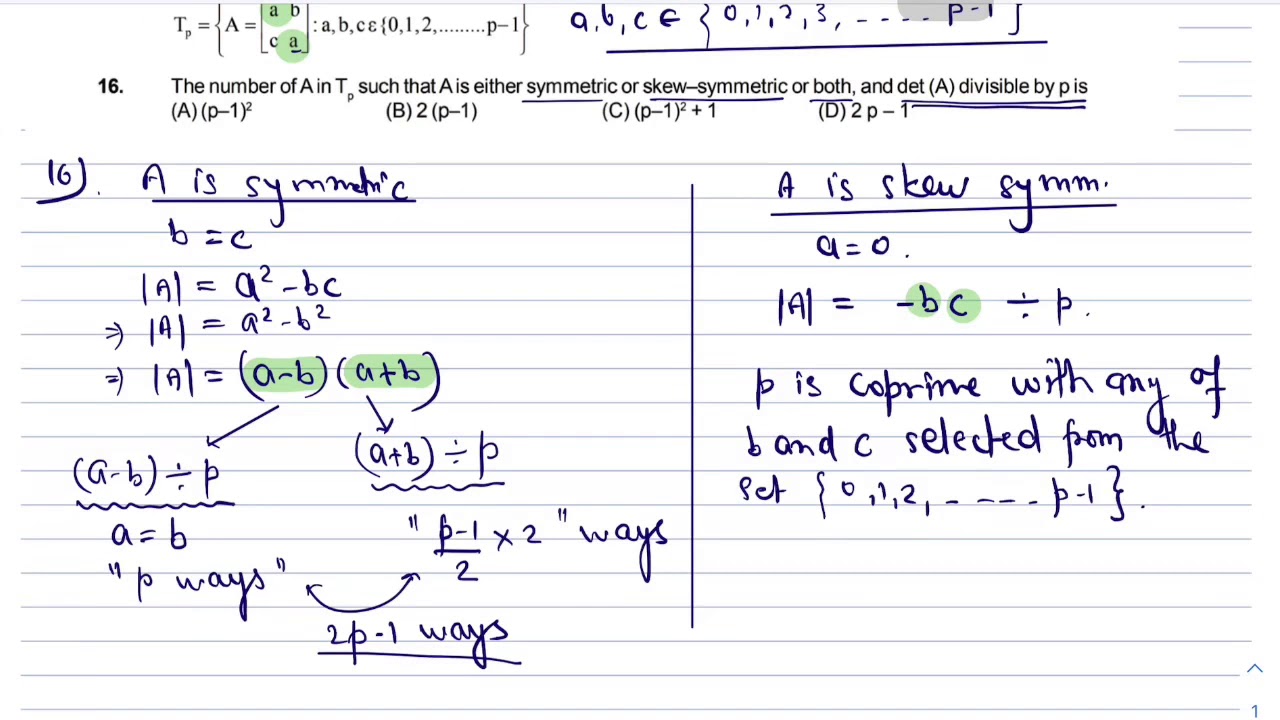 T_p = { A = [ a b
c a ] : a,b,c ε {0,1,2,.........p–1} }
a, b, c ∈ { 0, 1, 2, 3, - .... p-1 }
16. The number of A in T_p such that A is either symmetric or skew–symmetric or both, and det (A) divisible by p is
(A) (p–1)² (B) 2 (p–1) (C) (p–1)² + 1 (D) 2 p – 1
16). A is symmetric
b = c
|A| = a² - bc
⇒ |A| = a² - b²
⇒ |A| = (a-b) (a+b)
(a-b) ÷ p
(a+b) ÷ p
a = b
" p ways "
" p-1/2 × 2 " ways
2p-1 ways
A is skew symm.
a = 0 .
|A| = -bc ÷ p.
p is coprime with any of
b and c selected from the
set { 0, 1, 2, - - - - p-1 } .
1